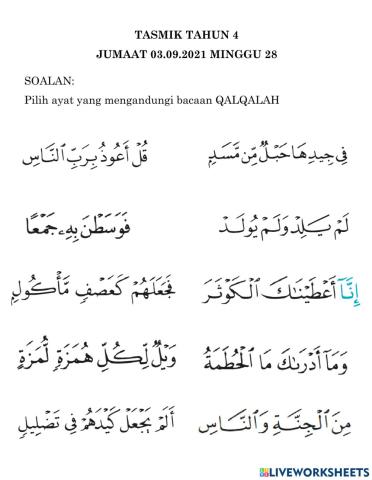 TASMIK TAHUN 4
JUMAAT 03.09.2021 MINGGU 28
SOALAN:
Pilih ayat yang mengandungi bacaan QALQALAH
فِي جِيدِهَا حَبْلٌ مِّن مَّسَدٍ
قُلْ أَعُوذُ بِرَبِّ ٱلنَّاسِ
لَمْ يَلِدْ وَلَمْ يُولَدْ
فَوَسَطْنَ بِهِۦ جَمْعًا
إِنَّآ أَعْطَيْنَٰكَ ٱلْكَوْثَرَ
فَجَعَلَهُمْ كَعَصْفٍ مَّأْكُولٍ
وَمَآ أَدْرَىٰكَ مَا ٱلْحُطَمَةُ
وَيْلٌ لِّكُلِّ هُمَزَةٍ لُّمَزَةٍ
مِنَ ٱلْجِنَّةِ وَٱلنَّاسِ
أَلَمْ يَجْعَلْ كَيْدَهُمْ فِي تَضْلِيلٍ
LIVEWORKSHEETS